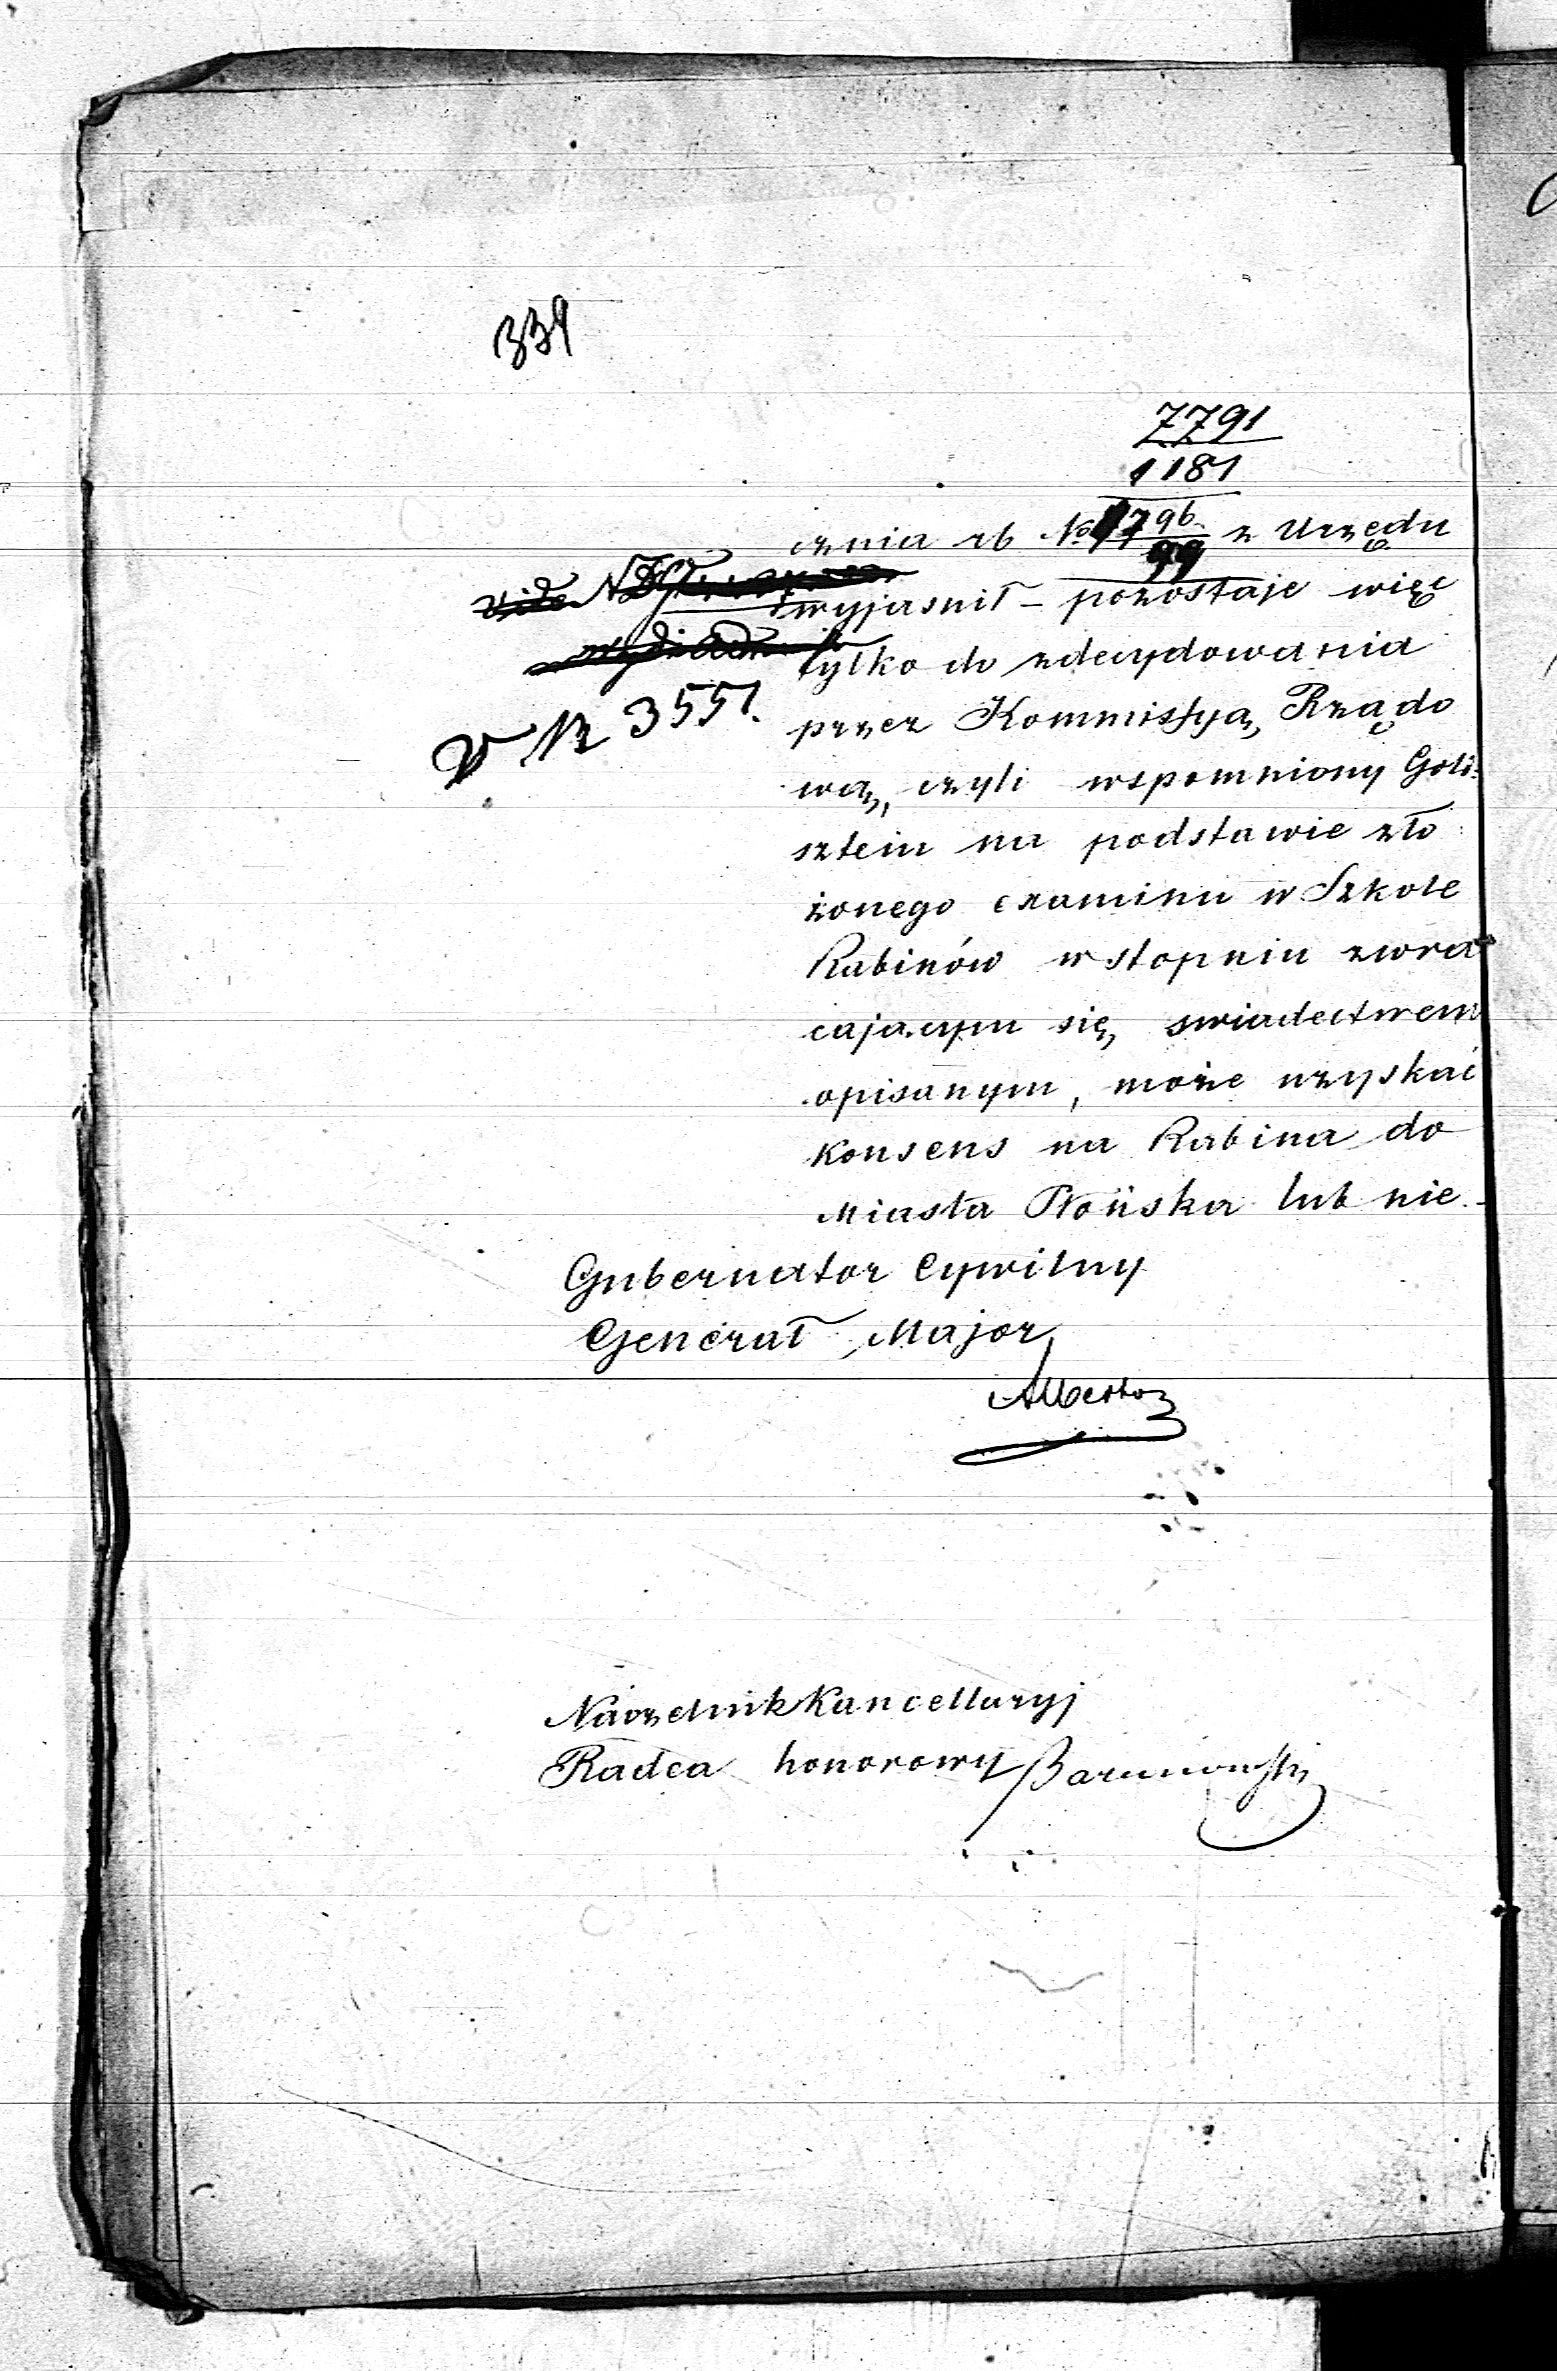 339
7791
1181
cznia rb No 1796 z Urzędu
99
wyjasnił – pozostaje więc
tylko do zdecydowania
przez Kommissyą Rządo
wą, czyli wspomniony Gold:
sztein na podstawie zło
żonego examinu w Szkole
Rabinów w stopniu zwra
cającym się swiadectwem
opisanym, może uzyskać
Konsens na Rabina do
Miasta Płońska lub nie.
V. Nr 3551.
Gubernator Cywilny
Generał Major
Naczelnik Kancellaryj
Radca honorowy